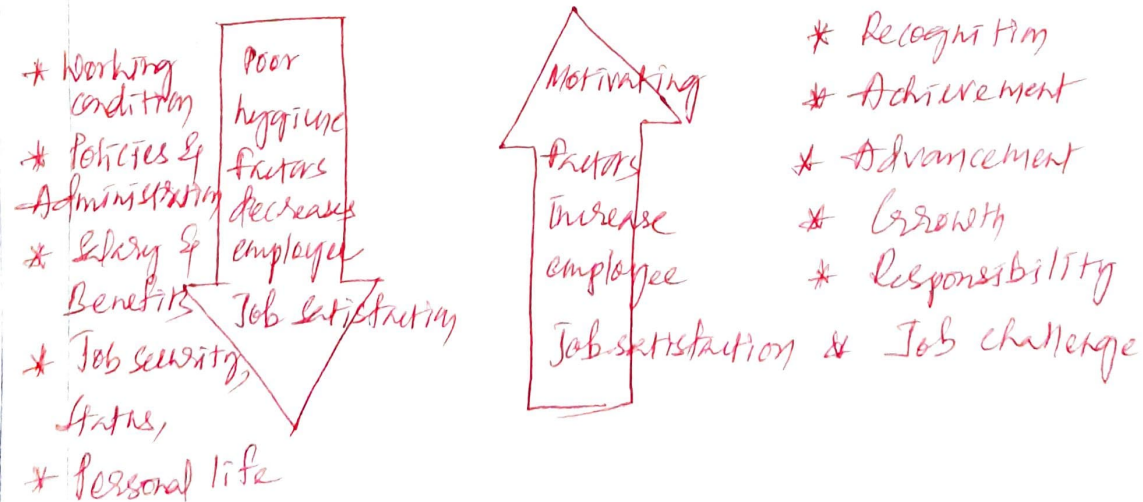 * Working
condition
* Policies &
Administration
* Salary &
Benefits
* Job security,
Status,
* Personal life
Poor
hygiene
factors
decreases
employee
Job satisfaction
Motivating
factors
Increase
employee
Job satisfaction
* Recognition
* Achievement
* Advancement
* Growth
* Responsibility
* Job challenge